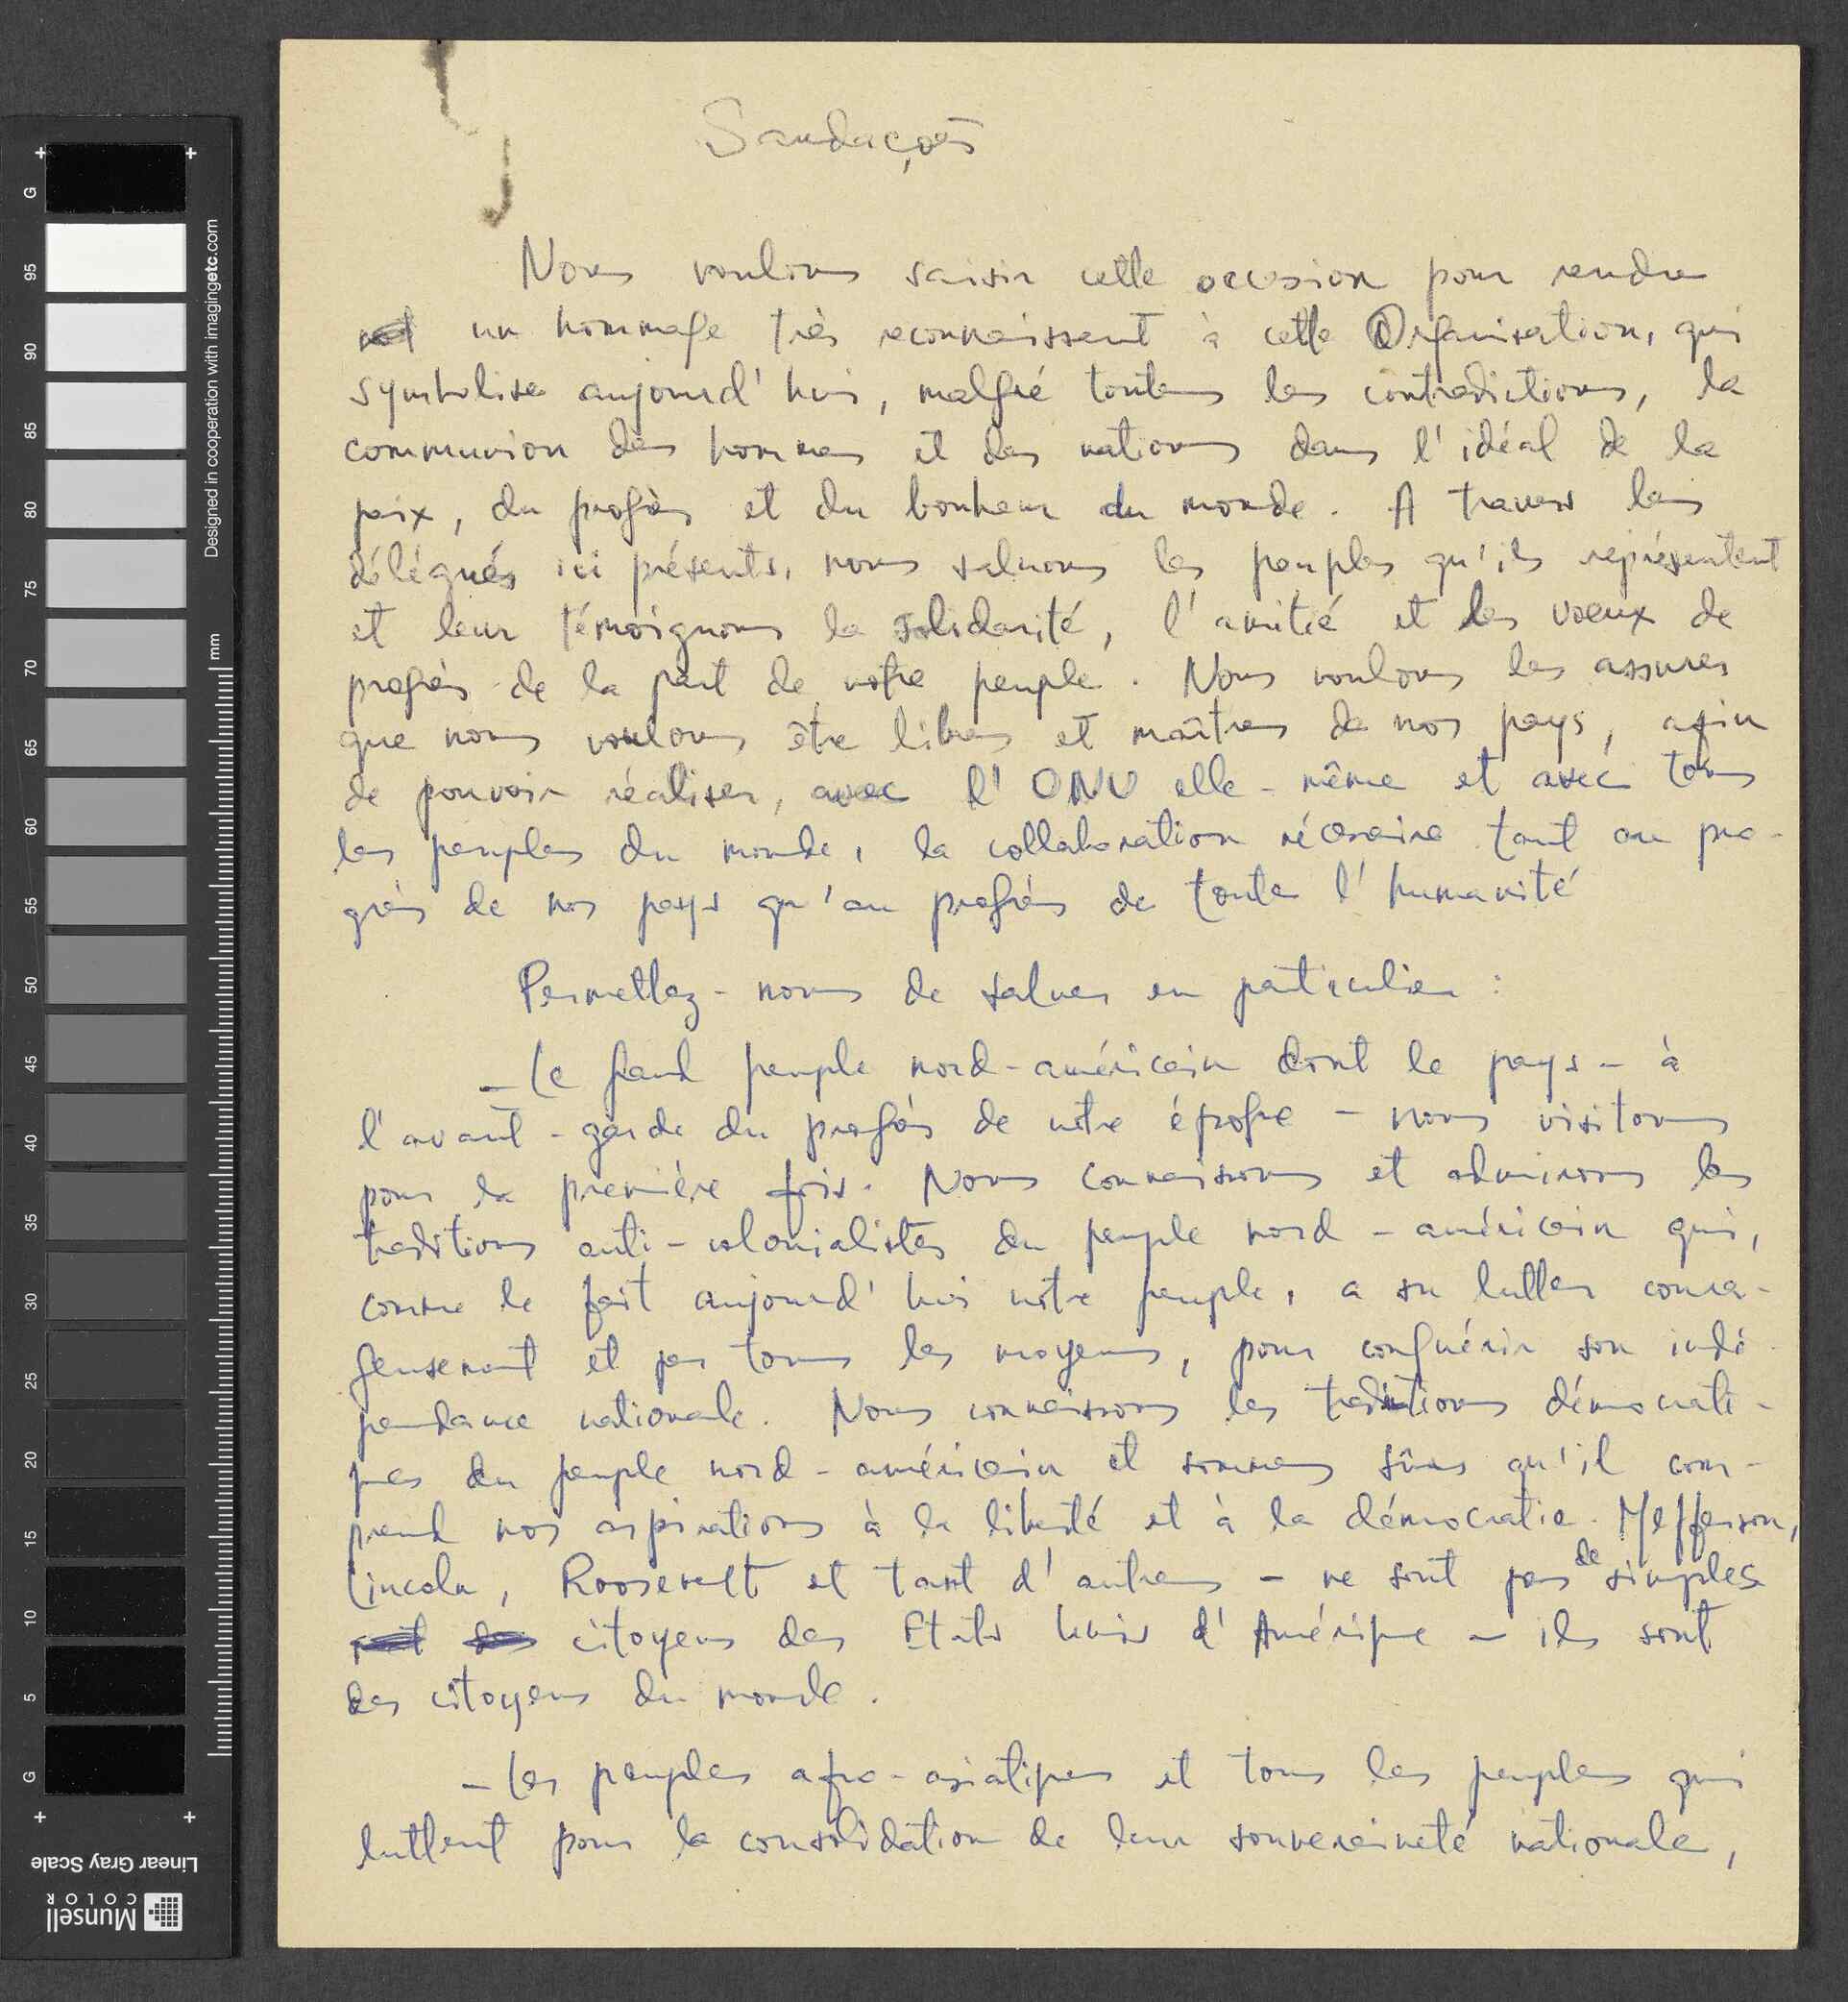 Saudações
Nous voulons saisir cette occasion pour rendre
un hommage très reconnaissant à cette Organisation, qui
symbolise aujourd'hui, malgré toutes les contradictions, la
communion des hommes et des nations dans l'idéal de la
paix, du progrès et du bonheur du monde. A travers les
délégués ici présents, nous saluons les peuples qu'ils représentent
et leur témoignons la solidarité, l'amitié et les voeux de
progrès de la part de notre peuple. Nous voulons les assurer
que nous voulons être libres et maîtres de nos pays, afin
de pouvoir réaliser, avec l'ONU elle-même et avec tous
les peuples du monde, la collaboration nécessaire tant au pro-
grès de nos pays qu'au progrès de toute l'humanité
Permettez-nous de saluer en particulier :
- Le grand peuple nord-américain dont le pays - à
l'avant-garde du progrès de notre époque - nous visitons
pour la première fois. Nous connaissons et admirons les
traditions anti-colonialistes du peuple nord-américain qui,
comme le fait aujourd'hui notre peuple, a su lutter coura-
geusement et par tous les moyens, pour conquérir son indé-
pendance nationale. Nous connaissons les traditions démocrati-
ques du peuple nord-américain et sommes sûrs qu'il com-
prend nos aspirations à la liberté et à la démocratie. Jefferson,
Lincoln, Roosevelt et tant d'autres - ne sont pas de simples
citoyens des Etats Unis d'Amérique - ils sont
des citoyens du monde.
- Les peuples afro-asiatiques et tous les peuples qui
luttent pour la consolidation de leur souveraineté nationale,
G
95
90
85
80
75
70
65
60
55
50
45
40
35
30
25
20
15
10
5
G
mm
Designed in cooperation with imagingetc.com
Linear Gray Scale
Munsell
COLOR